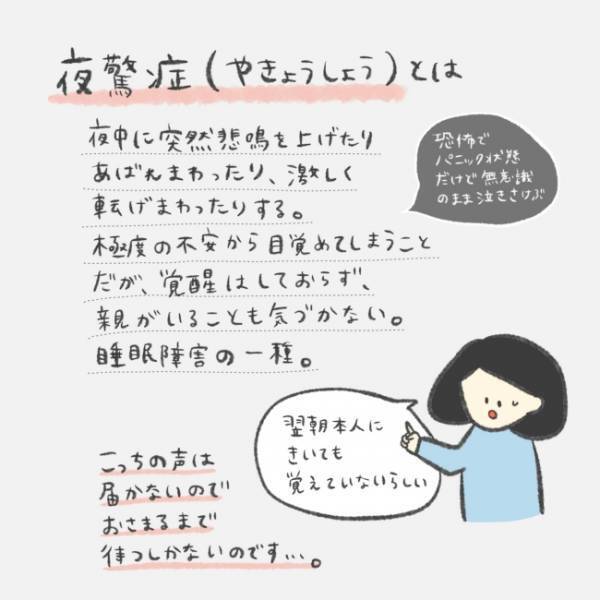 夜驚症(やきょうしょう)とは
夜中に突然悲鳴を上げたり
あばれまわったり、激しく
転げまわったりする。
極度の不安から目覚めてしまうこと
だが、覚醒はしておらず、
親がいることも気づかない。
睡眠障害の一種。
恐怖で
パニック状態
だけど無意識
のまま泣きさけぶ
翌朝本人に
きいても
覚えていないらしい
こっちの声は
届かないので
おさまるまで
待つしかないのです…。